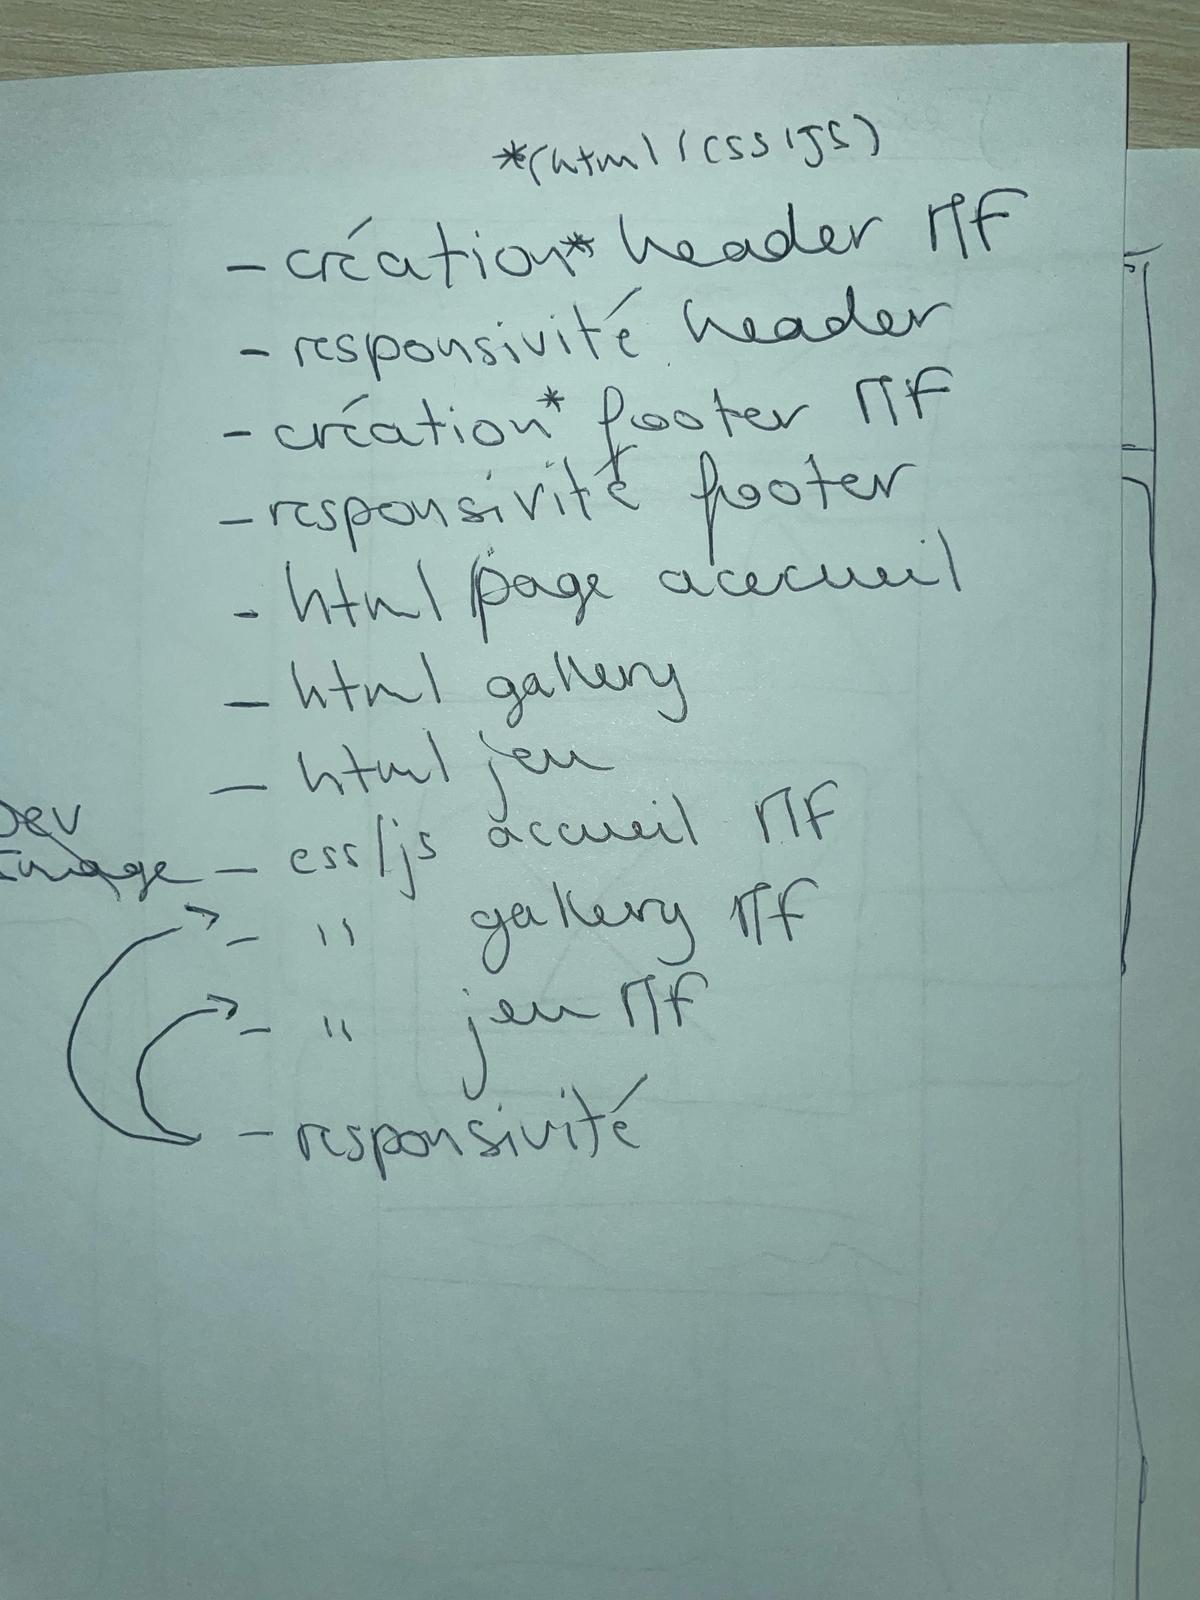 *(html/css/JS)
- création* header MF
- responsivité header
- création* footer MF
- responsivité footer
- html page acecueil
- html gallery
- html jeu
Dev
Image - css/js accueil MF
- " gallery MF
- " jeu MF
- responsivité